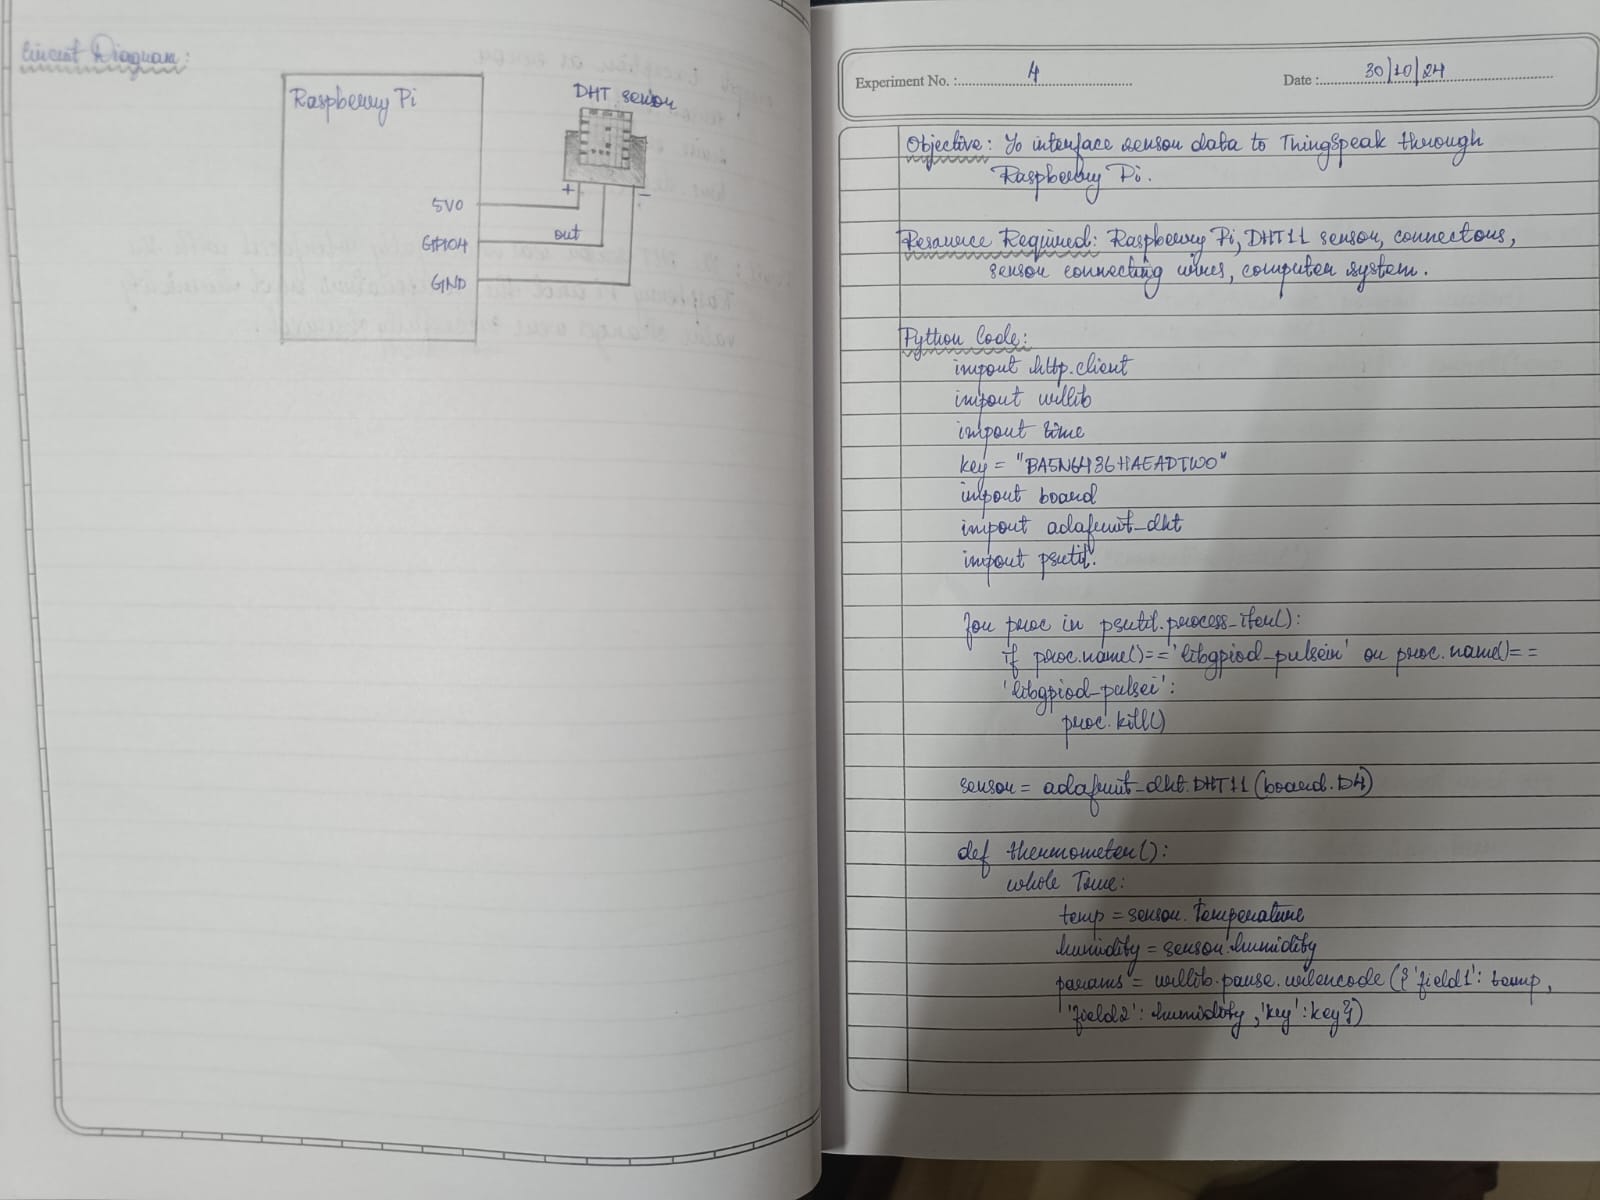 Circuit Diagram:
Raspberry Pi
DHT sensor
+
-
5V0
out
GPIO4
GND
Experiment No. : 4
Date : 30/10/24
Objective: To interface sensor data to ThingSpeak through
Raspberry Pi.
Resource Required: Raspberry Pi, DHT11 sensor, connectors,
sensor connecting wires, computer system.
Python Code:
import http.client
import urllib
import time
key = "BA5N6436HAEADTWO"
import board
import adafruit_dht
import psutil.
for proc in psutil.process_iter():
if proc.name()=='libgpiod_pulsein' or proc.name()==
'libgpiod_pulsei':
proc.kill()
sensor = adafruit_dht.DHT11(board.D4)
def thermometer():
while True:
temp = sensor.temperature
humidity = sensor.humidity
params = urllib.parse.urlencode({'field1': temp,
'field2': humidity, 'key': key})